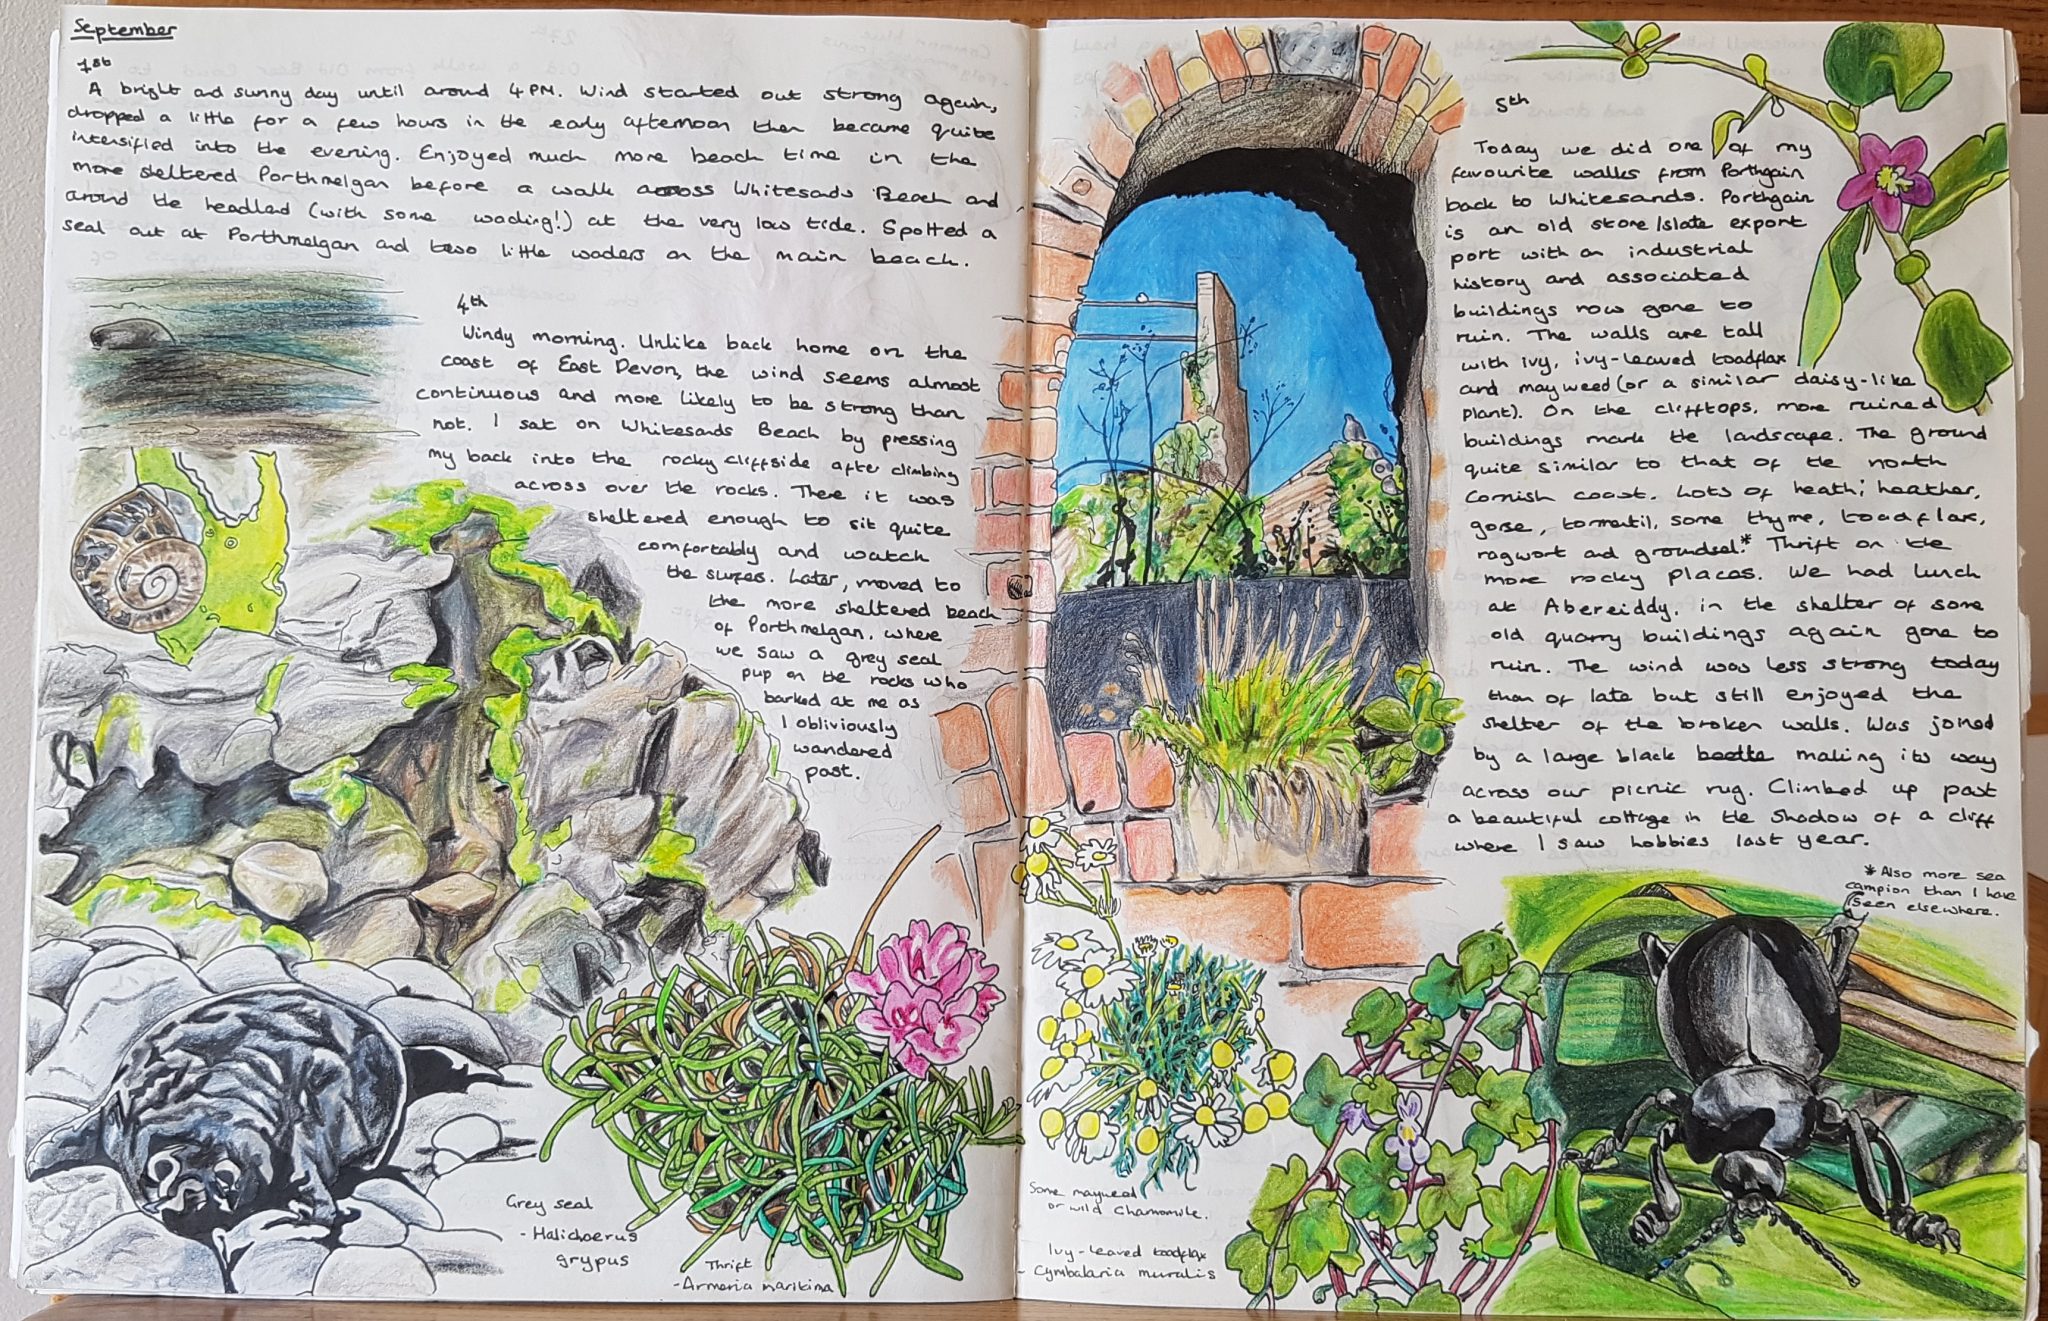 September
1st
A bright and sunny day until around 4PM. Wind started out strong again,
dropped a little for a few hours in the early afternoon then became quite
intensified into the evening. Enjoyed much more beach time in the
more sheltered Porthmelgan before a walk across Whitesands Beach and
around the headland (with some wading!) at the very low tide. Spotted a
seal out at Porthmelgan and two little waders on the main beach.
4th
Windy morning. Unlike back home on the
coast of East Devon, the wind seems almost
continuous and more likely to be strong than
not. I sat on Whitesands Beach by pressing
my back into the rocky cliffside after climbing
across over the rocks. There it was
sheltered enough to sit quite
comfortably and watch
the surfers. Later, moved to
the more sheltered beach
of Porthmelgan, where
we saw a grey seal
pup on the rocks who
barked at me as
I obliviously
wandered
past.
Grey seal
- Halichoerus
grypus
Thrift
- Armeria maritima
5th
Today we did one of my
favourite walks from Porthgain
back to Whitesands. Porthgain
is an old stone/slate export
port with an industrial
history and associated
buildings now gone to
ruin. The walls are tall
with ivy, ivy-leaved toadflax
and mayweed (or a similar daisy-like
plant). On the clifftops, more ruined
buildings mark the landscape. The ground
quite similar to that of the north
Cornish coast. Lots of heath; heather,
gorse, tormentil, some thyme, toadflax,
ragwort and groundsel.* Thrift on the
more rocky places. We had lunch
at Abereiddy, in the shelter of some
old quarry buildings again gone to
ruin. The wind was less strong today
than of late but still enjoyed the
shelter of the broken walls. Was joined
by a large black beetle making its way
across our picnic rug. Climbed up past
a beautiful cottage in the shadow of a cliff
where I saw hobbies last year.
* Also more sea
campion than I have
seen elsewhere.
Some mayweed
or wild chamomile.
Ivy-leaved toadflax
- Cymbalaria muralis